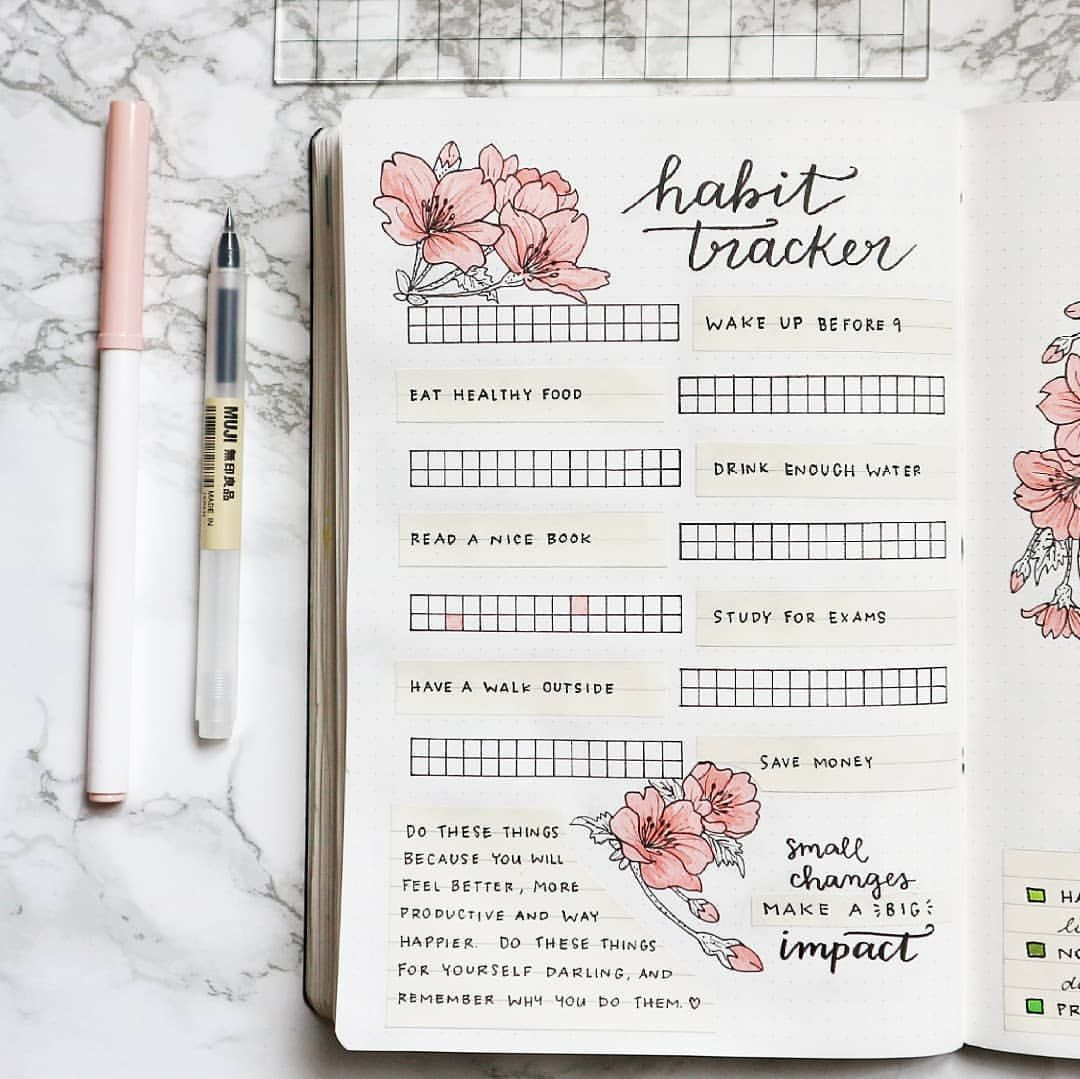 habit
tracker
WAKE UP BEFORE 9
EAT HEALTHY FOOD
DRINK ENOUGH WATER
READ A NICE BOOK
STUDY FOR EXAMS
HAVE A WALK OUTSIDE
SAVE MONEY
DO THESE THINGS
BECAUSE YOU WILL
FEEL BETTER, MORE
PRODUCTIVE AND WAY
HAPPIER. DO THESE THINGS
FOR YOURSELF DARLING, AND
REMEMBER WHY YOU DO THEM. ♡
small
changes
MAKE A BIG
impact
MUJI 無印良品
MADE IN
HA
NO
PR